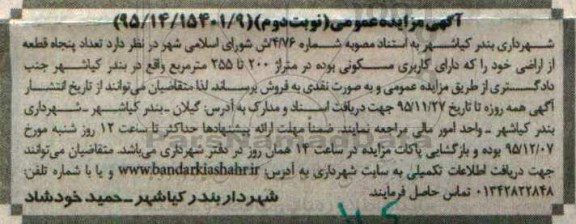 آگهی مزایده عمومی (نوبت دوم) (۹۵/۱۴/۱۵۴۰۱/۹)
شهرداری بندر کیاشهر به استناد مصوبه شماره ۴/۷۶/ش شورای اسلامی شهر در نظر دارد تعداد پنجاه قطعه
از اراضی خود را که دارای کاربری مسکونی بوده در متراژ ۲۰۰ تا ۲۵۵ مترمربع واقع در بندر کیاشهر جنب
دادگستری از طریق مزایده عمومی و به صورت نقدی به فروش برساند لذا متقاضیان می‌توانند از تاریخ انتشار
آگهی همه روزه تا تاریخ ۹۵/۱۱/۲۷ جهت دریافت اسناد و مدارک به آدرس: گیلان ـ بندر کیاشهر ـ شهرداری
بندر کیاشهر ـ واحد امور مالی مراجعه نمایند. ضمناً مهلت ارائه پیشنهادها حداکثر تا ساعت ۱۲ روز شنبه مورخ
۹۵/۱۲/۰۷ بوده و بازگشایی پاکات مزایده در ساعت ۱۴ همان روز در دفتر شهرداری می‌باشد. متقاضیان می‌توانند
جهت دریافت اطلاعات تکمیلی به سایت شهرداری به آدرس: www.bandarkiashahr.ir و یا با شماره تلفن:
۰۱۳۴۲۸۲۲۸۴۸ تماس حاصل فرمایند.
شهردار بندر کیاشهر ـ حمید خودشاد